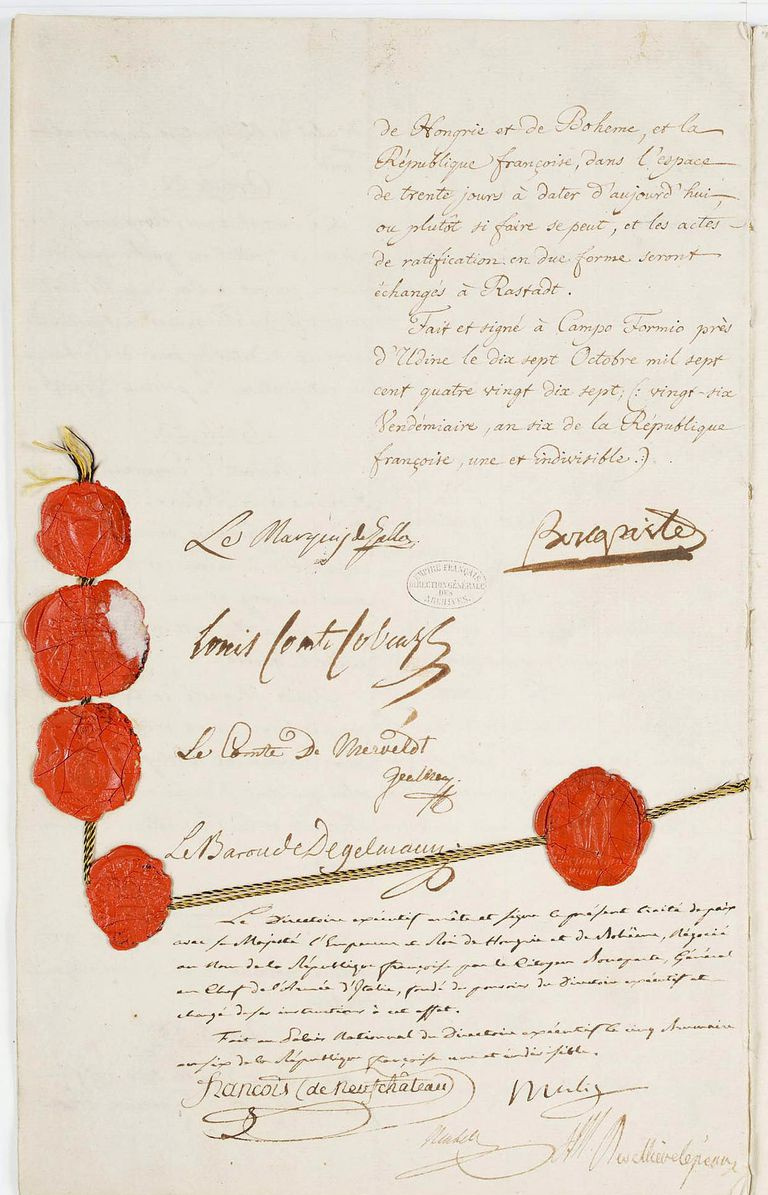 de Hongrie et de Boheme, et la
République françoise, dans l'espace
de trente jours à dater d'aujourd'hui,
ou plutôt si faire se peut, et les actes
de ratification en due forme seront
échangés à Rastadt.
Fait et signé à Campo Formio près
d'Udine le dix sept Octobre mil sept
cent quatre vingt dix sept; (: vingt-six
Vendémiaire, an six de la République
françoise, une et indivisible.)
Le Marquis de Gallo
Bonaparte
EMPIRE FRANÇAIS
DIRECTION GÉNÉRALE
DES
ARCHIVES.
Louis Comte Cobenzl
Le Comte De Merveldt
Le Baron de Degelmann
Le Directoire exécutif arrête et signe le présent traité de paix
avec sa Majesté l'Empereur et Roi de Hongrie et de Bohême, Négocié
au Nom de la République françoise par le Citoyen Bonaparte, Général
en Chef de l'Armée d'Italie, fondé de pouvoirs du Directoire exécutif et
chargé de ses instructions à cet effet.
Fait au Palais National du Directoire exécutif le cinq Brumaire
an six de la République françoise une et indivisible.
François (de neufchâteau)
Merlin
Reubell
Revellière lépeaux